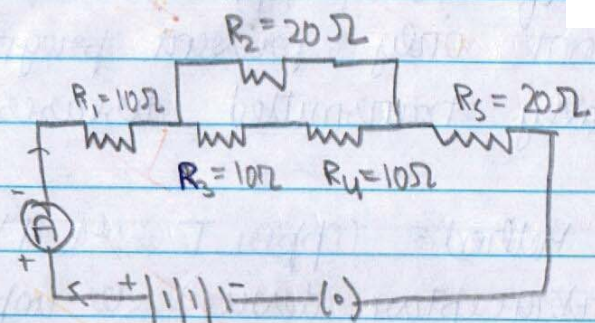 R₂=20Ω
R₁=10Ω
R₅=20Ω
R₃=10Ω
R₄=10Ω
-
A
+
+
-
(•)